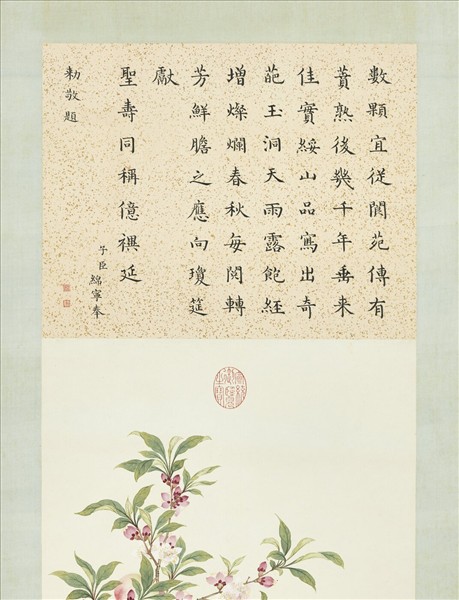 數顆宜從閬苑傳有
蕡熟後幾千年垂来
佳實綏山品寫出奇
葩玉洞天雨露飽經
增燦爛春秋每閱轉
芳鮮瞻之應向瓊筵
獻
聖壽同稱億禩延
子臣綿寧奉
勅敬題